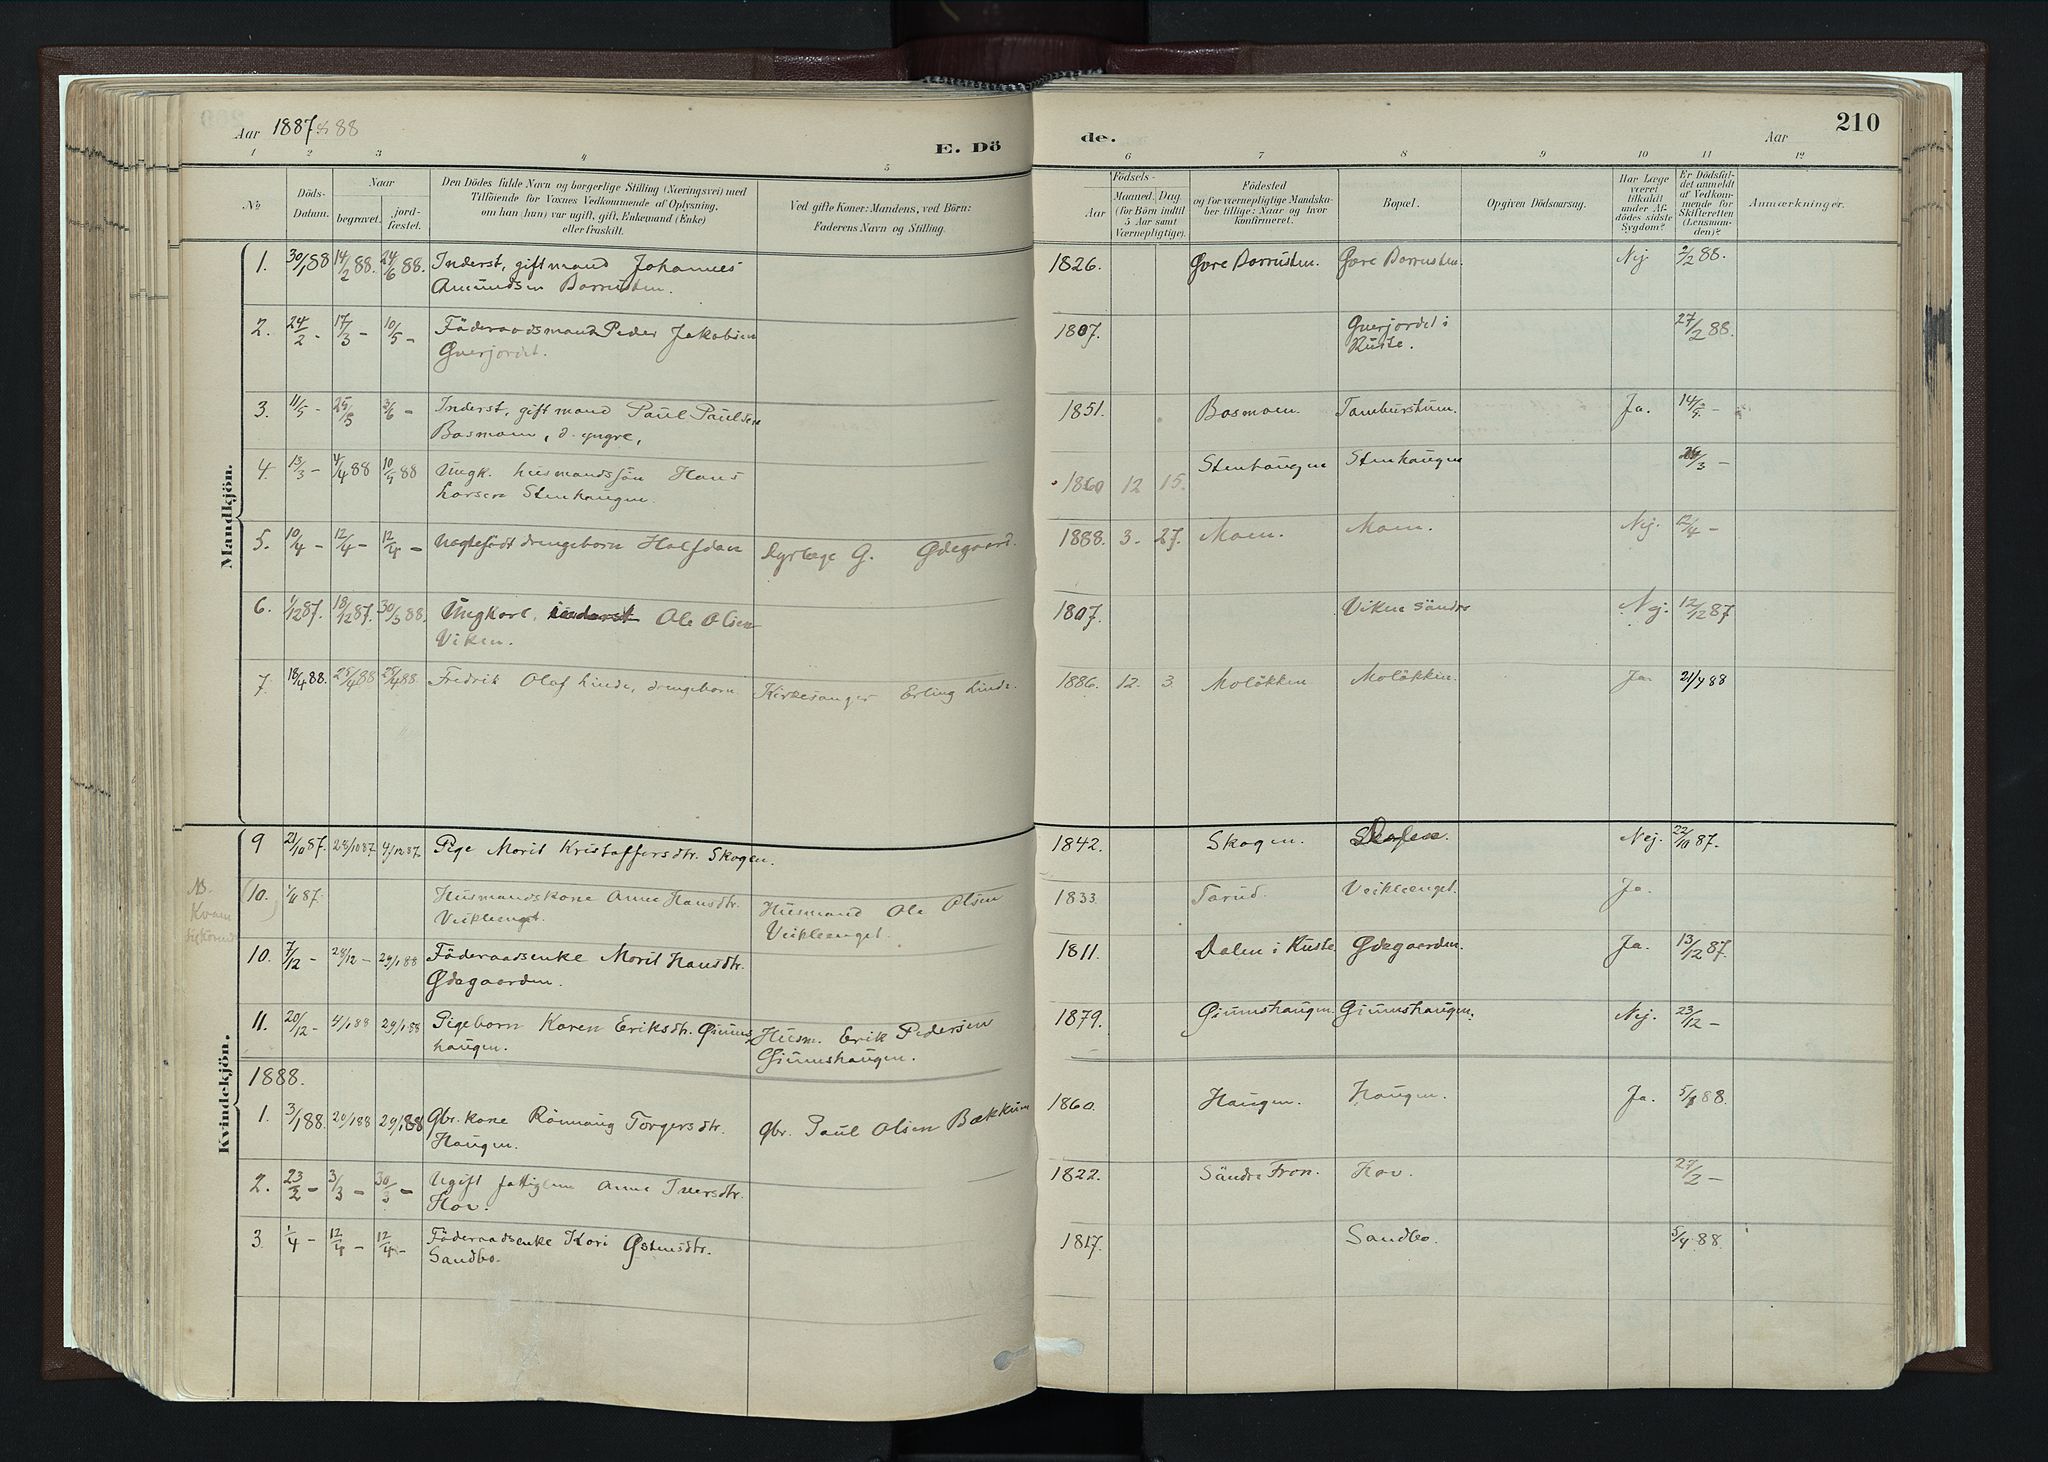 Aar 1887 & 88
E. Dö
de.
Aar
210
1 2 3 4 5 6 7 8 9 10 11 12
No
Döds-
Datum.
Naar
begravet.
jord-
fæstet.
Den Dödes fulde Navn og borgerlige Stilling (Næringsvei) med
Tilföiende for Voxnes Vedkommende af Oplysning,
om han (hun) var ugift, gift, Enkemand (Enke)
eller fraskilt.
Ved gifte Koner: Mandens, ved Börn:
Faderens Navn og Stilling.
Födsels-
Aar
Maaned. Dag
(for Börn indtil
5 Aar samt
Værnepligtige).
Födested
og for værnepligtige Mandska-
ber tillige: Naar og hvor
konfirmeret.
Bopæl.
Opgiven Dödsaarsag.
Har Læge
været
tilkaldt
under Af-
dödes sidste
Sygdom?
Er Dödsfal-
det anmeldt
af Vedkom-
mende for
Skifteretten
(Lensman-
den)?
Anmærkninger.
Mandkjön.
1. 30/1 88 14/2 88. 24/6 88. Inderst, gift mand Johannes 1826. Øvre Dorrusten. Øvre Dorrusten. Nej. 2/2 88.
Amundsen Dorrusten.
2. 24/2 - 17/3 - 10/5 - Föderaadsmand Peder Jakobsen 1807. Qverjordet i 27/2 88.
Qverjordet. Ruste.
3. 11/5 - 25/5 3/6 - Inderst, gift mand Paul Paulsen 1851. Basmoen. Tamburstuen. Ja. 14/5 -
Basmoen, d. yngre,
4. 13/3 - 4/4 88 10/5 88 Ungk. husmandssön Hans 1860 12 15. Stenhaugen Stenhaugen 26/3 -
Larsen Stenhaugen.
5. 10/4 - 12/4 - 12/4 - Uægtefödt drengebarn Halfdan Dyrlæge G. Ødegaard. 1888. 3. 27. Moen. Moen. Nej. 12/4 -
6. 1/12 87. 18/12 87. 30/3 88. Ungkarl, inderst Ole Olsen 1807. Viken söndre Nej. 12/12 87
Viken.
7. 18/4 88. 25/4 88 25/4 88. Fredrik Olaf Linde, drengebarn. Kirkesanger Erling Linde. 1886. 12. 3. Molökken Molökken. Ja. 21/4 88
Kvindekjön.
9 21/10 87. 28/10 87 4/12 87. Pige Marit Kristaffersdtr. Skogen. 1842. Skogen. Nej. 22/10 87.
NB.
Kvam
10. 1/11 87. Husmandskone Anne Hansdtr. Husmand Ole Olsen 1833. Tarud. Veikleenget. Ja.
Veikleenget. Veikleenget.
10. 7/12 - 28/12 - 29/1 88 Föderaadsenke Marit Hansdtr. 1811. Dalen i Ruste Ødegaarden. Ja. 13/12 87.
Ødegaarden.
11. 20/12 - 4/1 88 29/1 88 Pigebarn Karen Eriksdtr. Giums Husm. Erik Pedersen 1879. Giumshaugen. Giumshaugen. Nej. 23/12 -
haugen. Giumshaugen.
1888.
1. 3/1 88. 20/1 88 29/1 88 Gbr.kone Rönnaug Torgersdtr. Gbr. Paul Olsen Bækkum 1860. Haugen. Haugen. Ja. 5/1 88.
Haugen.
2. 23/2 - 3/3 - 30/3 - Ugift fattiglem Anne Iversdtr. 1822. Söndre Fron. Hov. 27/2 -
Hov.
3. 1/4 - 12/4 - 12/4 - Föderaadsenke Kari Østensdtr. 1817. Sandbo. 5/4 88.
Sandbo.